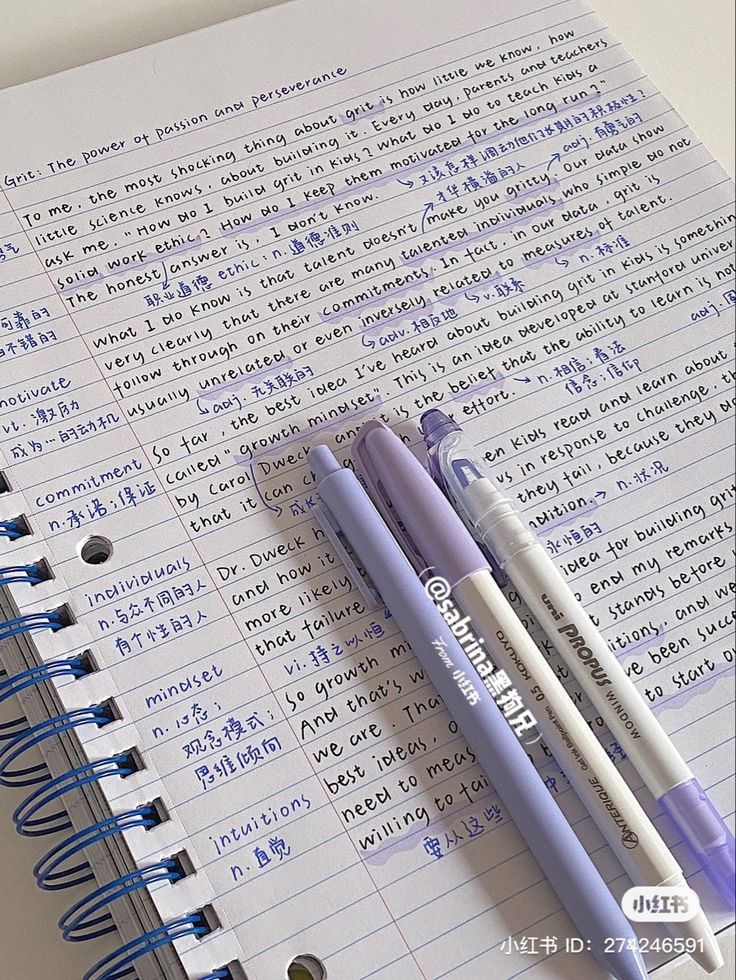 Grit: The power of passion and perseverance
To me, the most shocking thing about grit is how little we know, how
little science knows, about building it. Every day, parents and teachers
ask me, "How do I build grit in kids? What do I do to teach kids a
solid work ethic? How do I keep them motivated for the long run?"
又该怎样调动他们长期的积极性?
The honest answer is, I don't know.
职业道德 ethic: n. 道德准则
才华横溢的人
adj. 有勇气的
What I do know is that talent doesn't make you gritty. Our data show
very clearly that there are many talented individuals who simple do not
follow through on their commitments. In fact, in our data, grit is
usually unrelated or even inversely related to measures of talent.
adj. 无关联的
adv. 相反地
v. 联系
n. 标准
So far, the best idea I've heard about building grit in kids is something
called "growth mindset". This is an idea developed at stanford univer
by Carol Dweck is the belief that the ability to learn is not
adj.
that it can effort.
n. 相信；看法
信念；信仰
成长
Dr. Dweck kids read and learn about
and how it in response to challenge,
more likely they fail, because they do
that failure ndition.
n. 状况
永恒的
vi. 持之以恒
So growth mi idea for building grit
And that's w o end my remarks
we are. Tha t stands before
best ideas, itions, and we
need to meas ve been succe
willing to fai to start o
要从这些
气
可靠的
不错的
motivate
vt. 激励
成为…的动机
commitment
n. 承诺；保证
individuals
n. 与众不同的人
有个性的人
mindset
n. 心态；
观念模式；
思维倾向
intuitions
n. 直觉
@sabrina黑狗兄
From 小红书
uni PROPUS WINDOW
KOKUYO
Gel Ink Ballpoint Pen 0.5
ANTERIQUE
小红书
小红书 ID: 274246591